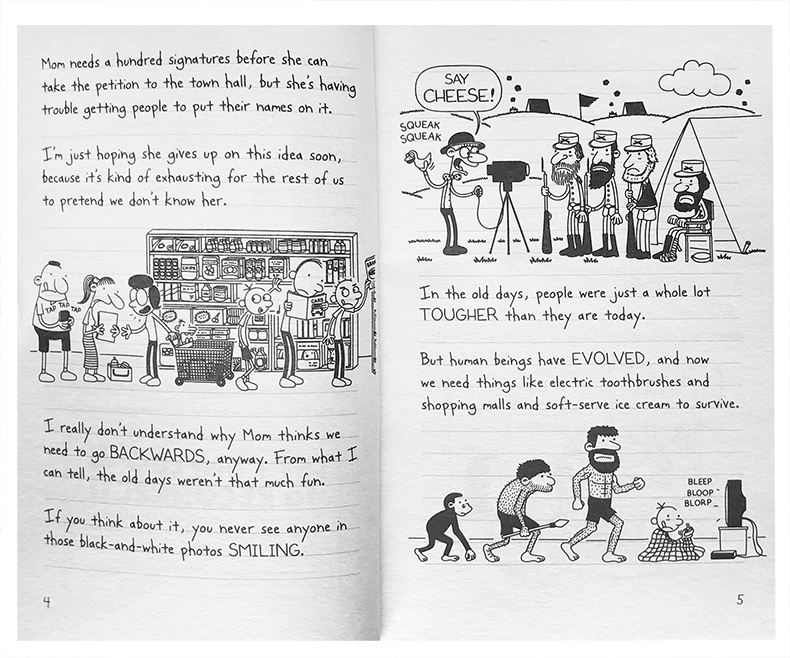 Mom needs a hundred signatures before she can
take the petition to the town hall, but she's having
trouble getting people to put their names on it.
I'm just hoping she gives up on this idea soon,
because it's kind of exhausting for the rest of us
to pretend we don't know her.
TAP TAP TAP
CHIPS
CARS
I really don't understand why Mom thinks we
need to go BACKWARDS, anyway. From what I
can tell, the old days weren't that much fun.
If you think about it, you never see anyone in
those black-and-white photos SMILING.
4
SAY
CHEESE!
SQUEAK
SQUEAK
In the old days, people were just a whole lot
TOUGHER than they are today.
But human beings have EVOLVED, and now
we need things like electric toothbrushes and
shopping malls and soft-serve ice cream to survive.
BLEEP
BLOOP
BLORP
5